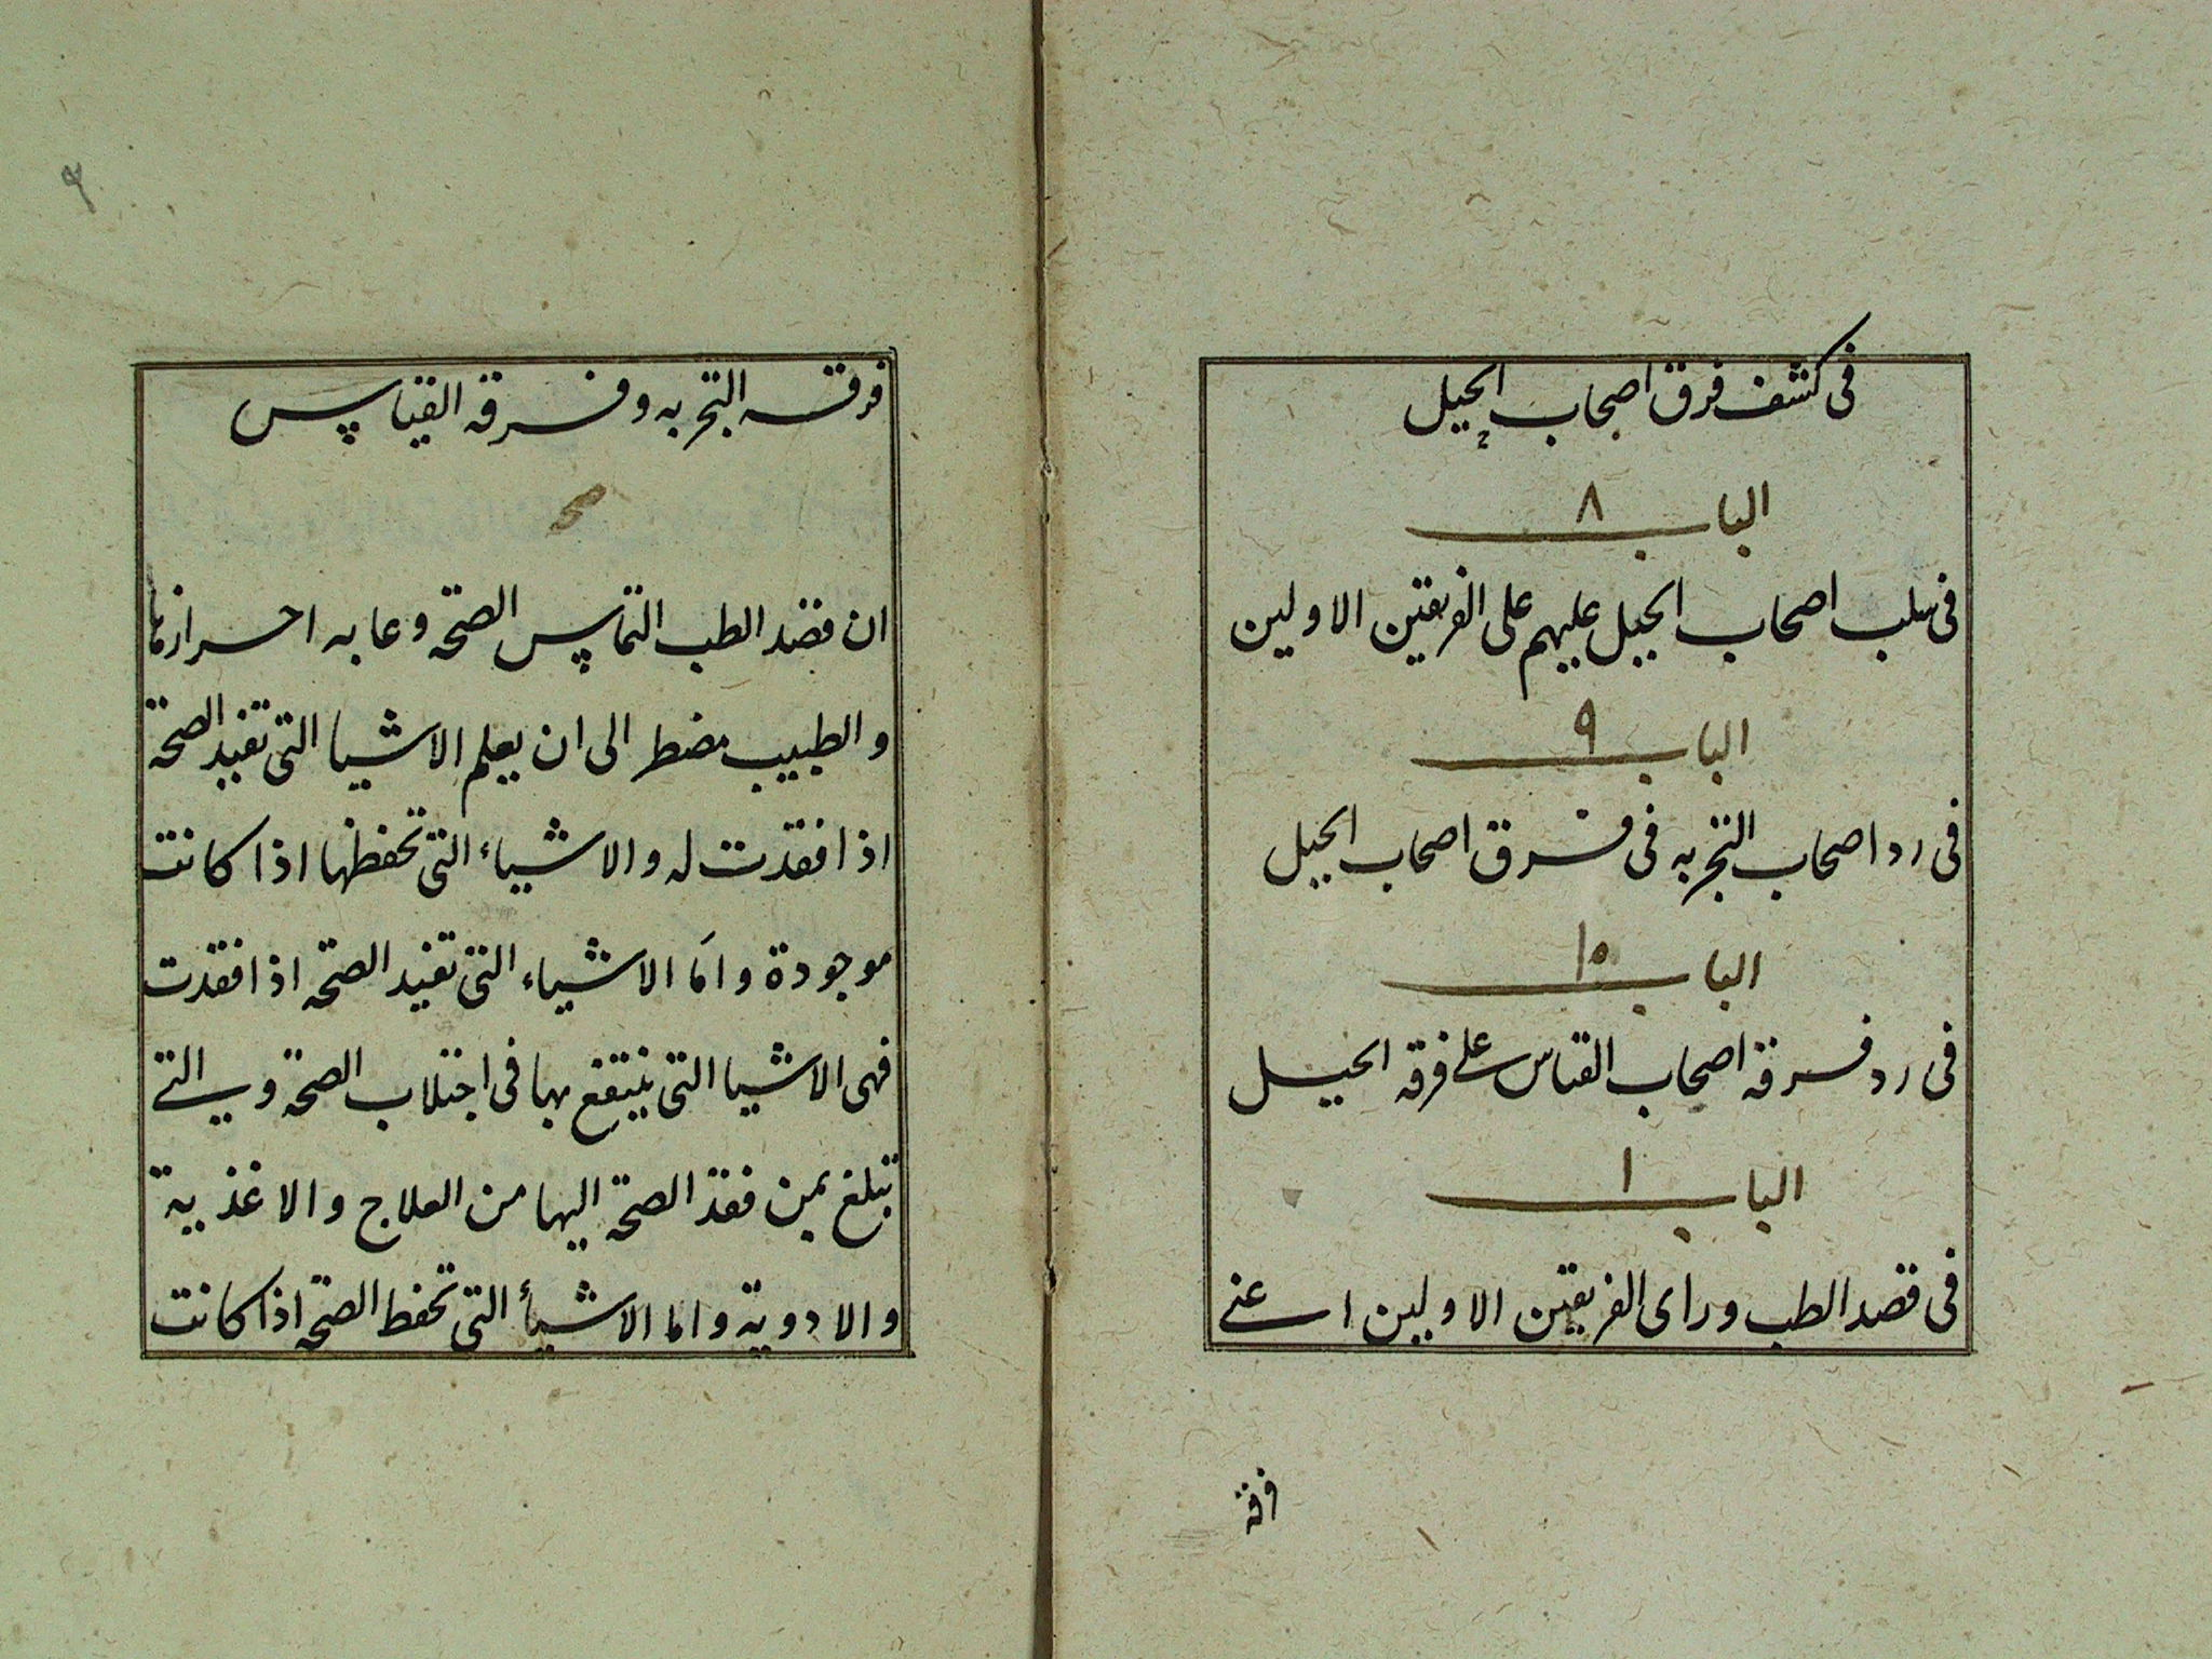 فى كشف فرق اصحاب الحيل
الباب ٨
فى سلب اصحاب الحيل عليهم على الفريقين الاولين
الباب ٩
فى رد اصحاب التجربه فى فرق اصحاب الحيل
الباب ١٥
فى رد فرقه اصحاب القياس على فرقه الحيل
الباب ١
فى قصد الطب وراى الفريقين الاولين اعنے
فرقة
فرقه التجربه وفرقه القياس
ان قصد الطب التماس الصحة وعابه احرازها
والطبيب مضطر الى ان يعلم الاشيا التى تفيد الصحة
اذا فقدت له والاشياء التى تحفظها اذا كانت
موجودة واما الاشياء التى تفيد الصحه اذا فقدت
فهى الاشيا التى ينتفع بها فى اجتلاب الصحة وهى التے
تبلغ بمن فقد الصحة اليها من العلاج والاغذية
والادوية واما الاشيأ التى تحفط الصحة اذا كانت